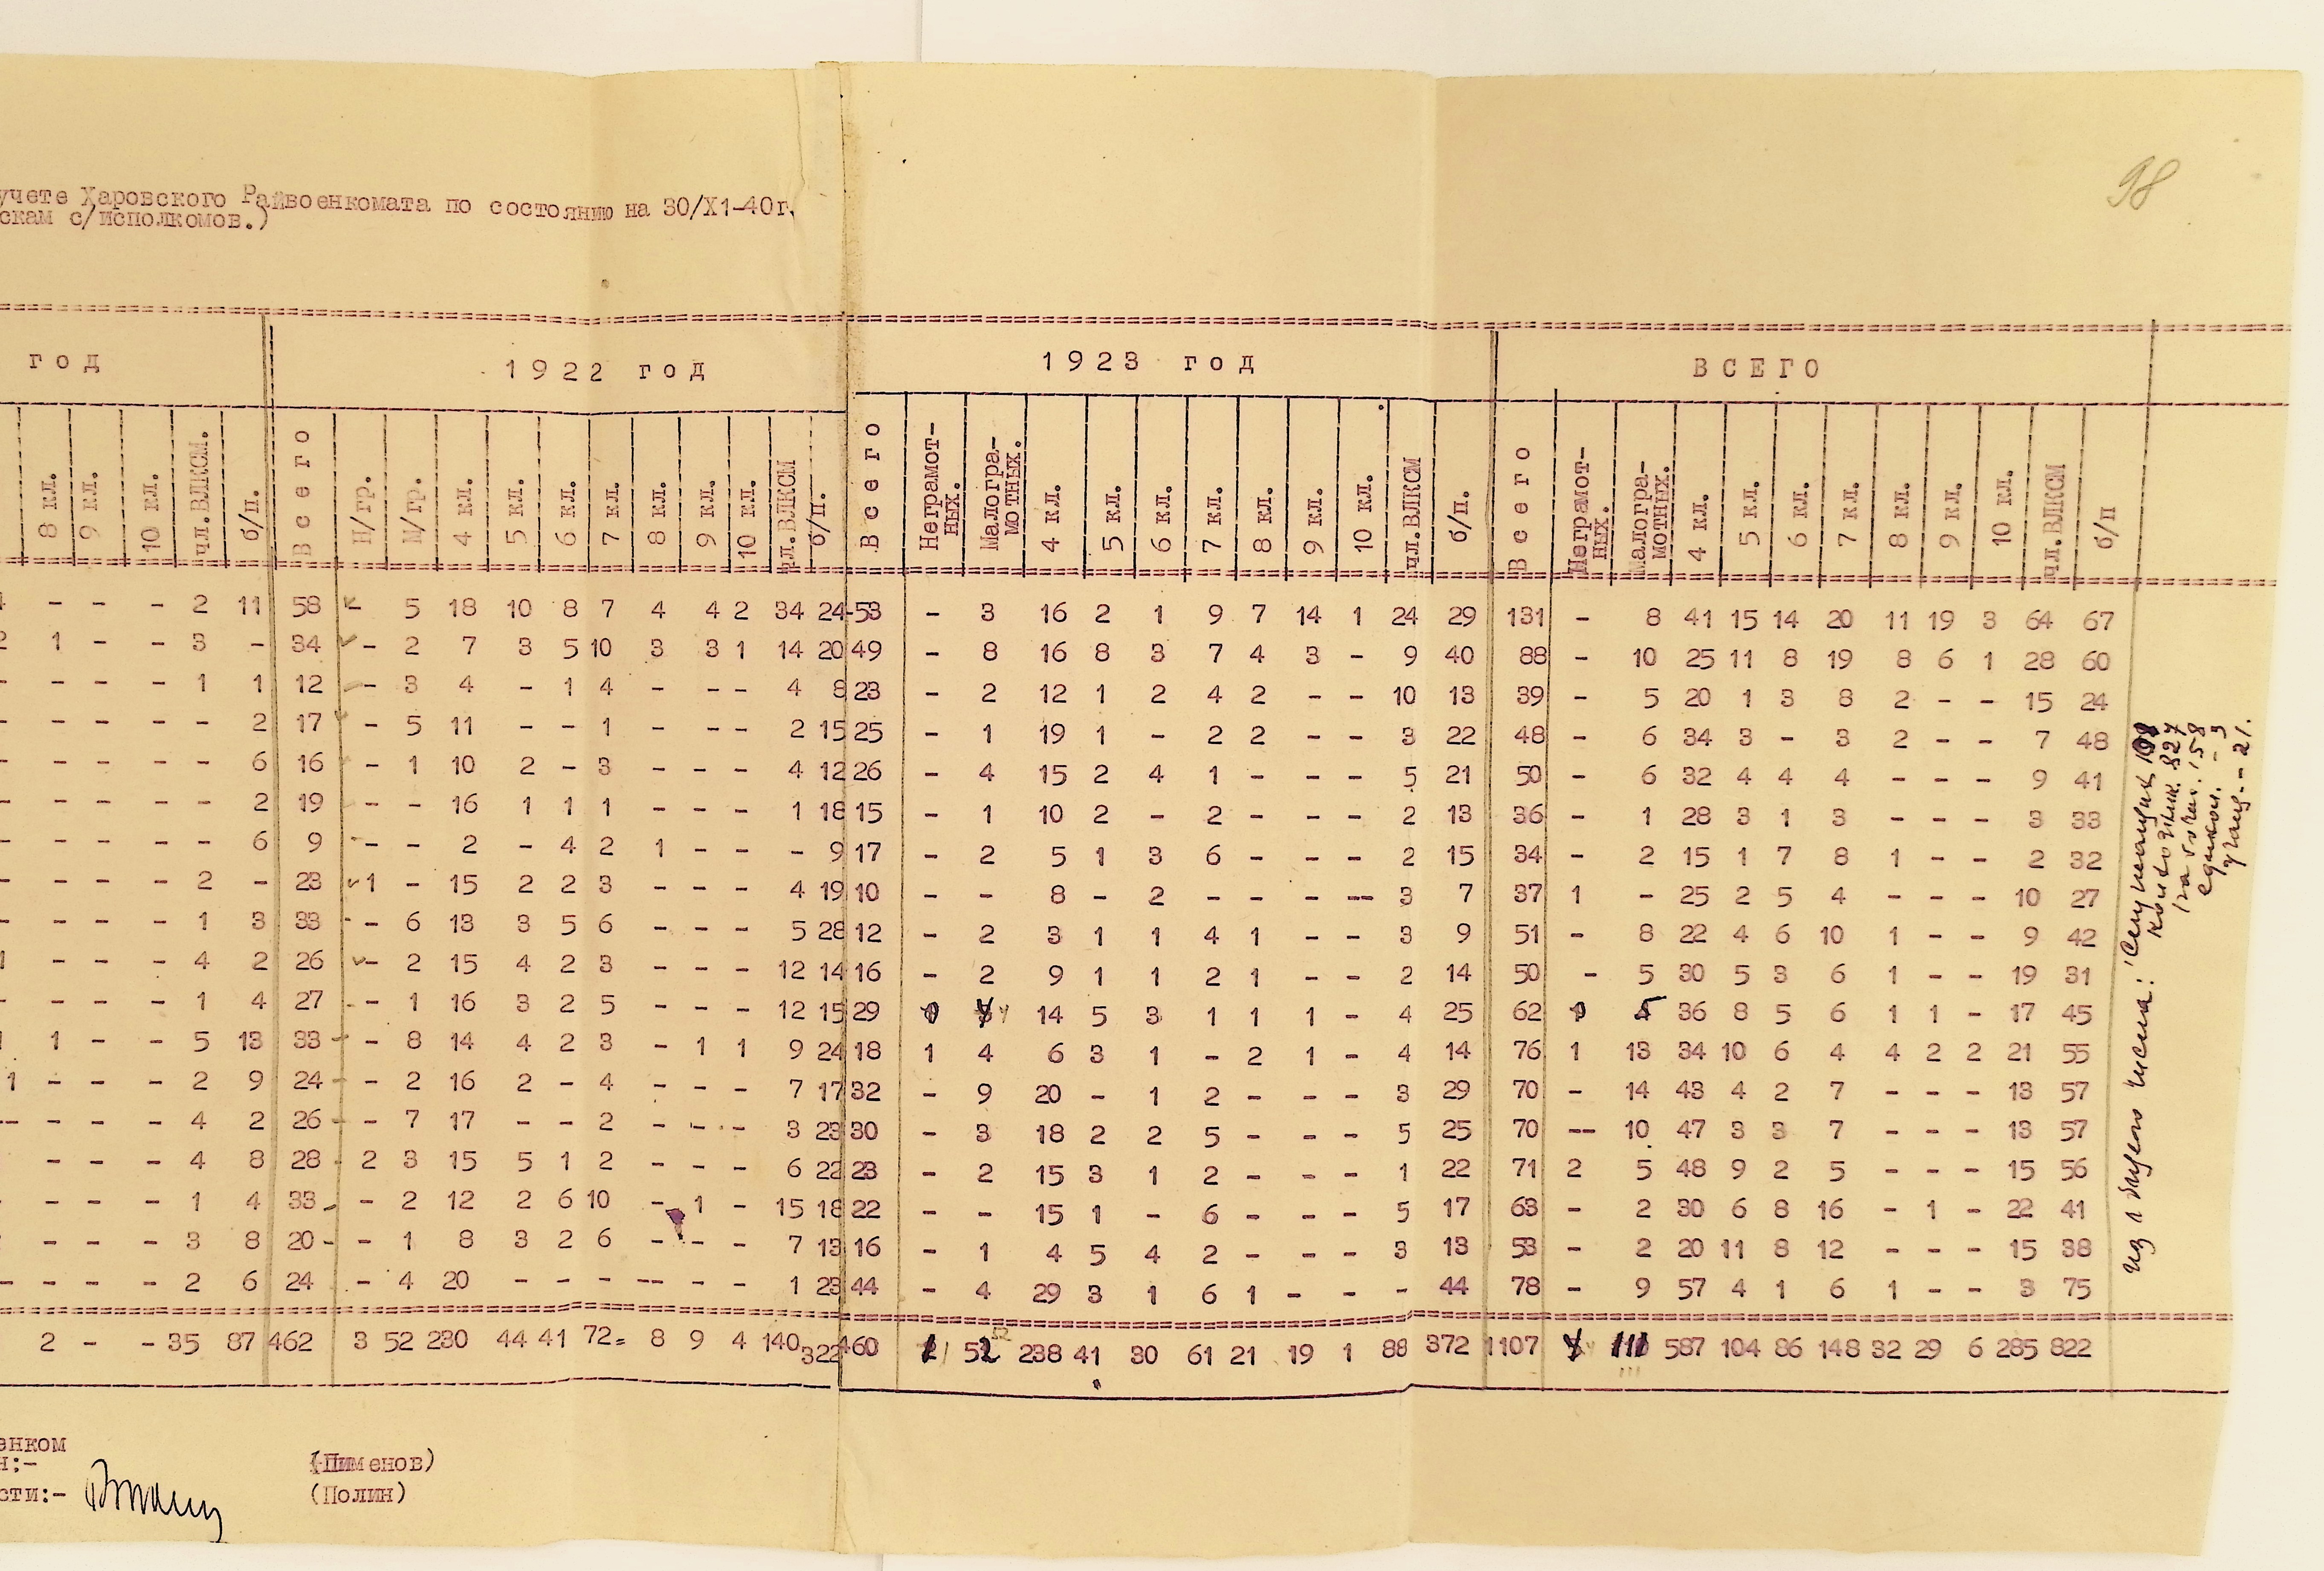 98
учете Харовского Райвоенкомата по состоянию на 30/X1-40г.
скам с/исполкомов.)
год 1922 год 1923 год ВСЕГО
8 кл. 9 кл. 10 кл. чл.ВЛКСМ. б/п. Всего Н/гр. М/гр. 4 кл. 5 кл. 6 кл. 7 кл. 8 кл. 9 кл. 10 кл. чл.ВЛКСМ б/п. Всего Неграмот-ных. Малогра-мотных. 4 кл. 5 кл. 6 кл. 7 кл. 8 кл. 9 кл. 10 кл. чл.ВЛКСМ б/п. Всего Неграмот-ных. Малогра-мотных. 4 кл. 5 кл. 6 кл. 7 кл. 8 кл. 9 кл. 10 кл. чл.ВЛКСМ б/п
- - - 2 11 58 - 5 18 10 8 7 4 4 2 34 24 53 - 3 16 2 1 9 7 14 1 24 29 131 - 8 41 15 14 20 11 19 3 64 67
2 1 - - 3 - 34 - 2 7 3 5 10 3 3 1 14 20 49 - 8 16 8 3 7 4 3 - 9 40 88 - 10 25 11 8 19 8 6 1 28 60
- - - - 1 1 12 - 3 4 - 1 4 - - - 4 8 23 - 2 12 1 2 4 2 - - 10 13 39 - 5 20 1 3 8 2 - - 15 24
- - - - - 2 17 - 5 11 - - 1 - - - 2 15 25 - 1 19 1 - 2 2 - - 3 22 48 - 6 34 3 - 3 2 - - 7 48
- - - - - 6 16 - 1 10 2 - 3 - - - 4 12 26 - 4 15 2 4 1 - - - 5 21 50 - 6 32 4 4 4 - - - 9 41
- - - - - 2 19 - - 16 1 1 1 - - - 1 18 15 - 1 10 2 - 2 - - - 2 13 36 - 1 28 3 1 3 - - - 3 33
- - - - - 6 9 - - 2 - 4 2 1 - - - 9 17 - 2 5 1 3 6 - - - 2 15 34 - 2 15 1 7 8 1 - - 2 32
- - - - 2 - 23 1 - 15 2 2 3 - - - 4 19 10 - - 8 - 2 - - - -- 3 7 37 1 - 25 2 5 4 - - - 10 27
- - - - 1 3 33 - 6 13 3 5 6 - - - 5 28 12 - 2 3 1 1 4 1 - - 3 9 51 - 8 22 4 6 10 1 - - 9 42
1 - - - 4 2 26 - 2 15 4 2 3 - - - 12 14 16 - 2 9 1 1 2 1 - - 2 14 50 - 5 30 5 3 6 1 - - 19 31
- - - - 1 4 27 - 1 16 3 2 5 - - - 12 15 29 14 5 3 1 1 1 - 4 25 62 5 36 8 5 6 1 1 - 17 45
1 1 - - 5 13 33 - 8 14 4 2 3 - 1 1 9 24 18 1 4 6 3 1 - 2 1 - 4 14 76 1 13 34 10 6 4 4 2 2 21 55
1 - - - 2 9 24 - 2 16 2 - 4 - - - 7 17 32 - 9 20 - 1 2 - - - 3 29 70 - 14 43 4 2 7 - - - 13 57
-- - - - 4 2 26 - 7 17 - - 2 - - - 3 23 30 - 3 18 2 2 5 - - - 5 25 70 -- 10 47 3 3 7 - - - 13 57
- - - 4 8 28 2 3 15 5 1 2 - - - 6 22 23 - 2 15 3 1 2 - - - 1 22 71 2 5 48 9 2 5 - - - 15 56
- - - - 1 4 33 - 2 12 2 6 10 - 1 - 15 18 22 - - 15 1 - 6 - - - 5 17 63 - 2 30 6 8 16 - 1 - 22 41
- - - 3 8 20 - 1 8 3 2 6 - - - 7 13 16 - 1 4 5 4 2 - - - 3 13 53 - 2 20 11 8 12 - - - 15 38
- - - - 2 6 24 - 4 20 - - - -- - - 1 23 44 - 4 29 3 1 6 1 - - - 44 78 - 9 57 4 1 6 1 - - 3 75
2 - - 35 87 462 3 52 230 44 41 72= 8 9 4 140 322 460 1 52 238 41 30 61 21 19 1 88 372 1107 111 587 104 86 148 32 29 6 285 822
Из общего числа: Служащих
827
58
един. - 3
- 21.
енком
н:- (Пименов)
сти:- (Полин)